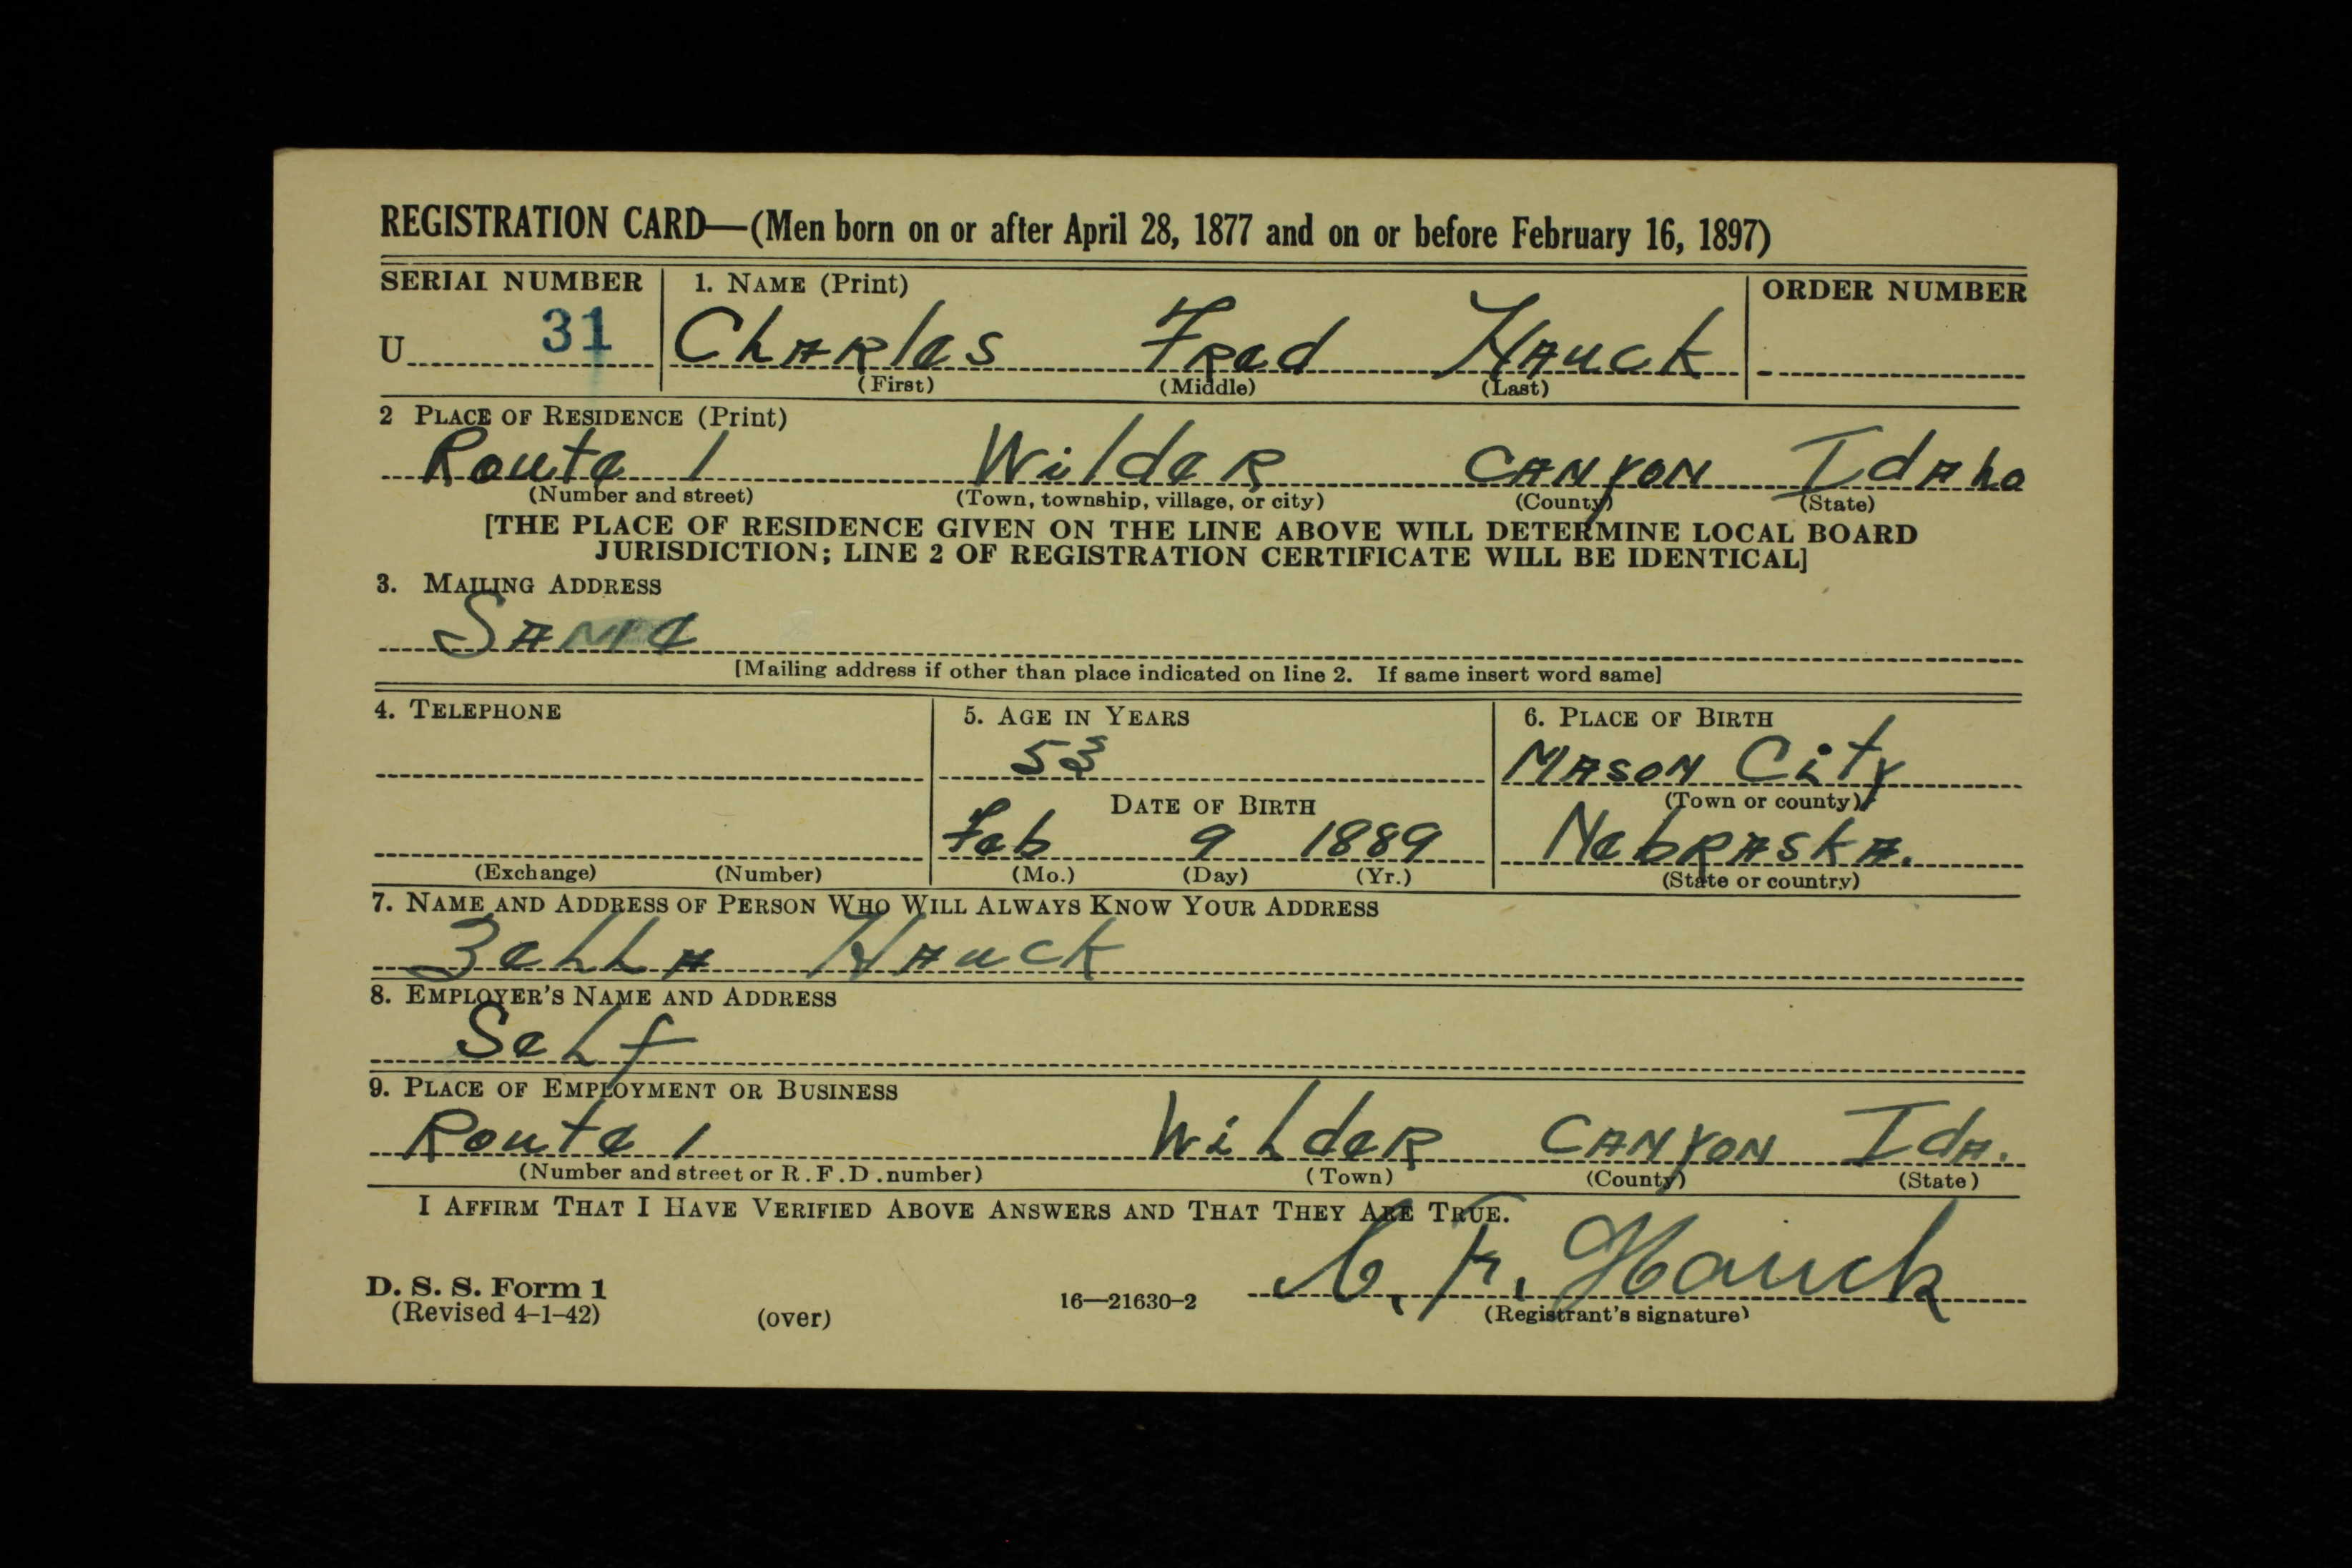 REGISTRATION CARD—(Men born on or after April 28, 1877 and on or before February 16, 1897)
SERIAL NUMBER 1. NAME (Print) ORDER NUMBER
U 31 Charles Fred Hauck
(First) (Middle) (Last)
2 PLACE OF RESIDENCE (Print)
Route 1 Wilder CANYON Idaho
(Number and street) (Town, township, village, or city) (County) (State)
[THE PLACE OF RESIDENCE GIVEN ON THE LINE ABOVE WILL DETERMINE LOCAL BOARD
JURISDICTION; LINE 2 OF REGISTRATION CERTIFICATE WILL BE IDENTICAL]
3. MAILING ADDRESS
Same
[Mailing address if other than place indicated on line 2. If same insert word same]
4. TELEPHONE 5. AGE IN YEARS 6. PLACE OF BIRTH
53 Mason City
DATE OF BIRTH (Town or county)
Feb 9 1889 Nebraska.
(Exchange) (Number) (Mo.) (Day) (Yr.) (State or country)
7. NAME AND ADDRESS OF PERSON WHO WILL ALWAYS KNOW YOUR ADDRESS
Zella Hauck
8. EMPLOYER'S NAME AND ADDRESS
Self
9. PLACE OF EMPLOYMENT OR BUSINESS
Route 1 Wilder CANYON Ida.
(Number and street or R.F.D. number) (Town) (County) (State)
I AFFIRM THAT I HAVE VERIFIED ABOVE ANSWERS AND THAT THEY ARE TRUE.
C. F. Hauck
D. S. S. Form 1
(Revised 4-1-42) (over) 16—21630-2 (Registrant's signature)